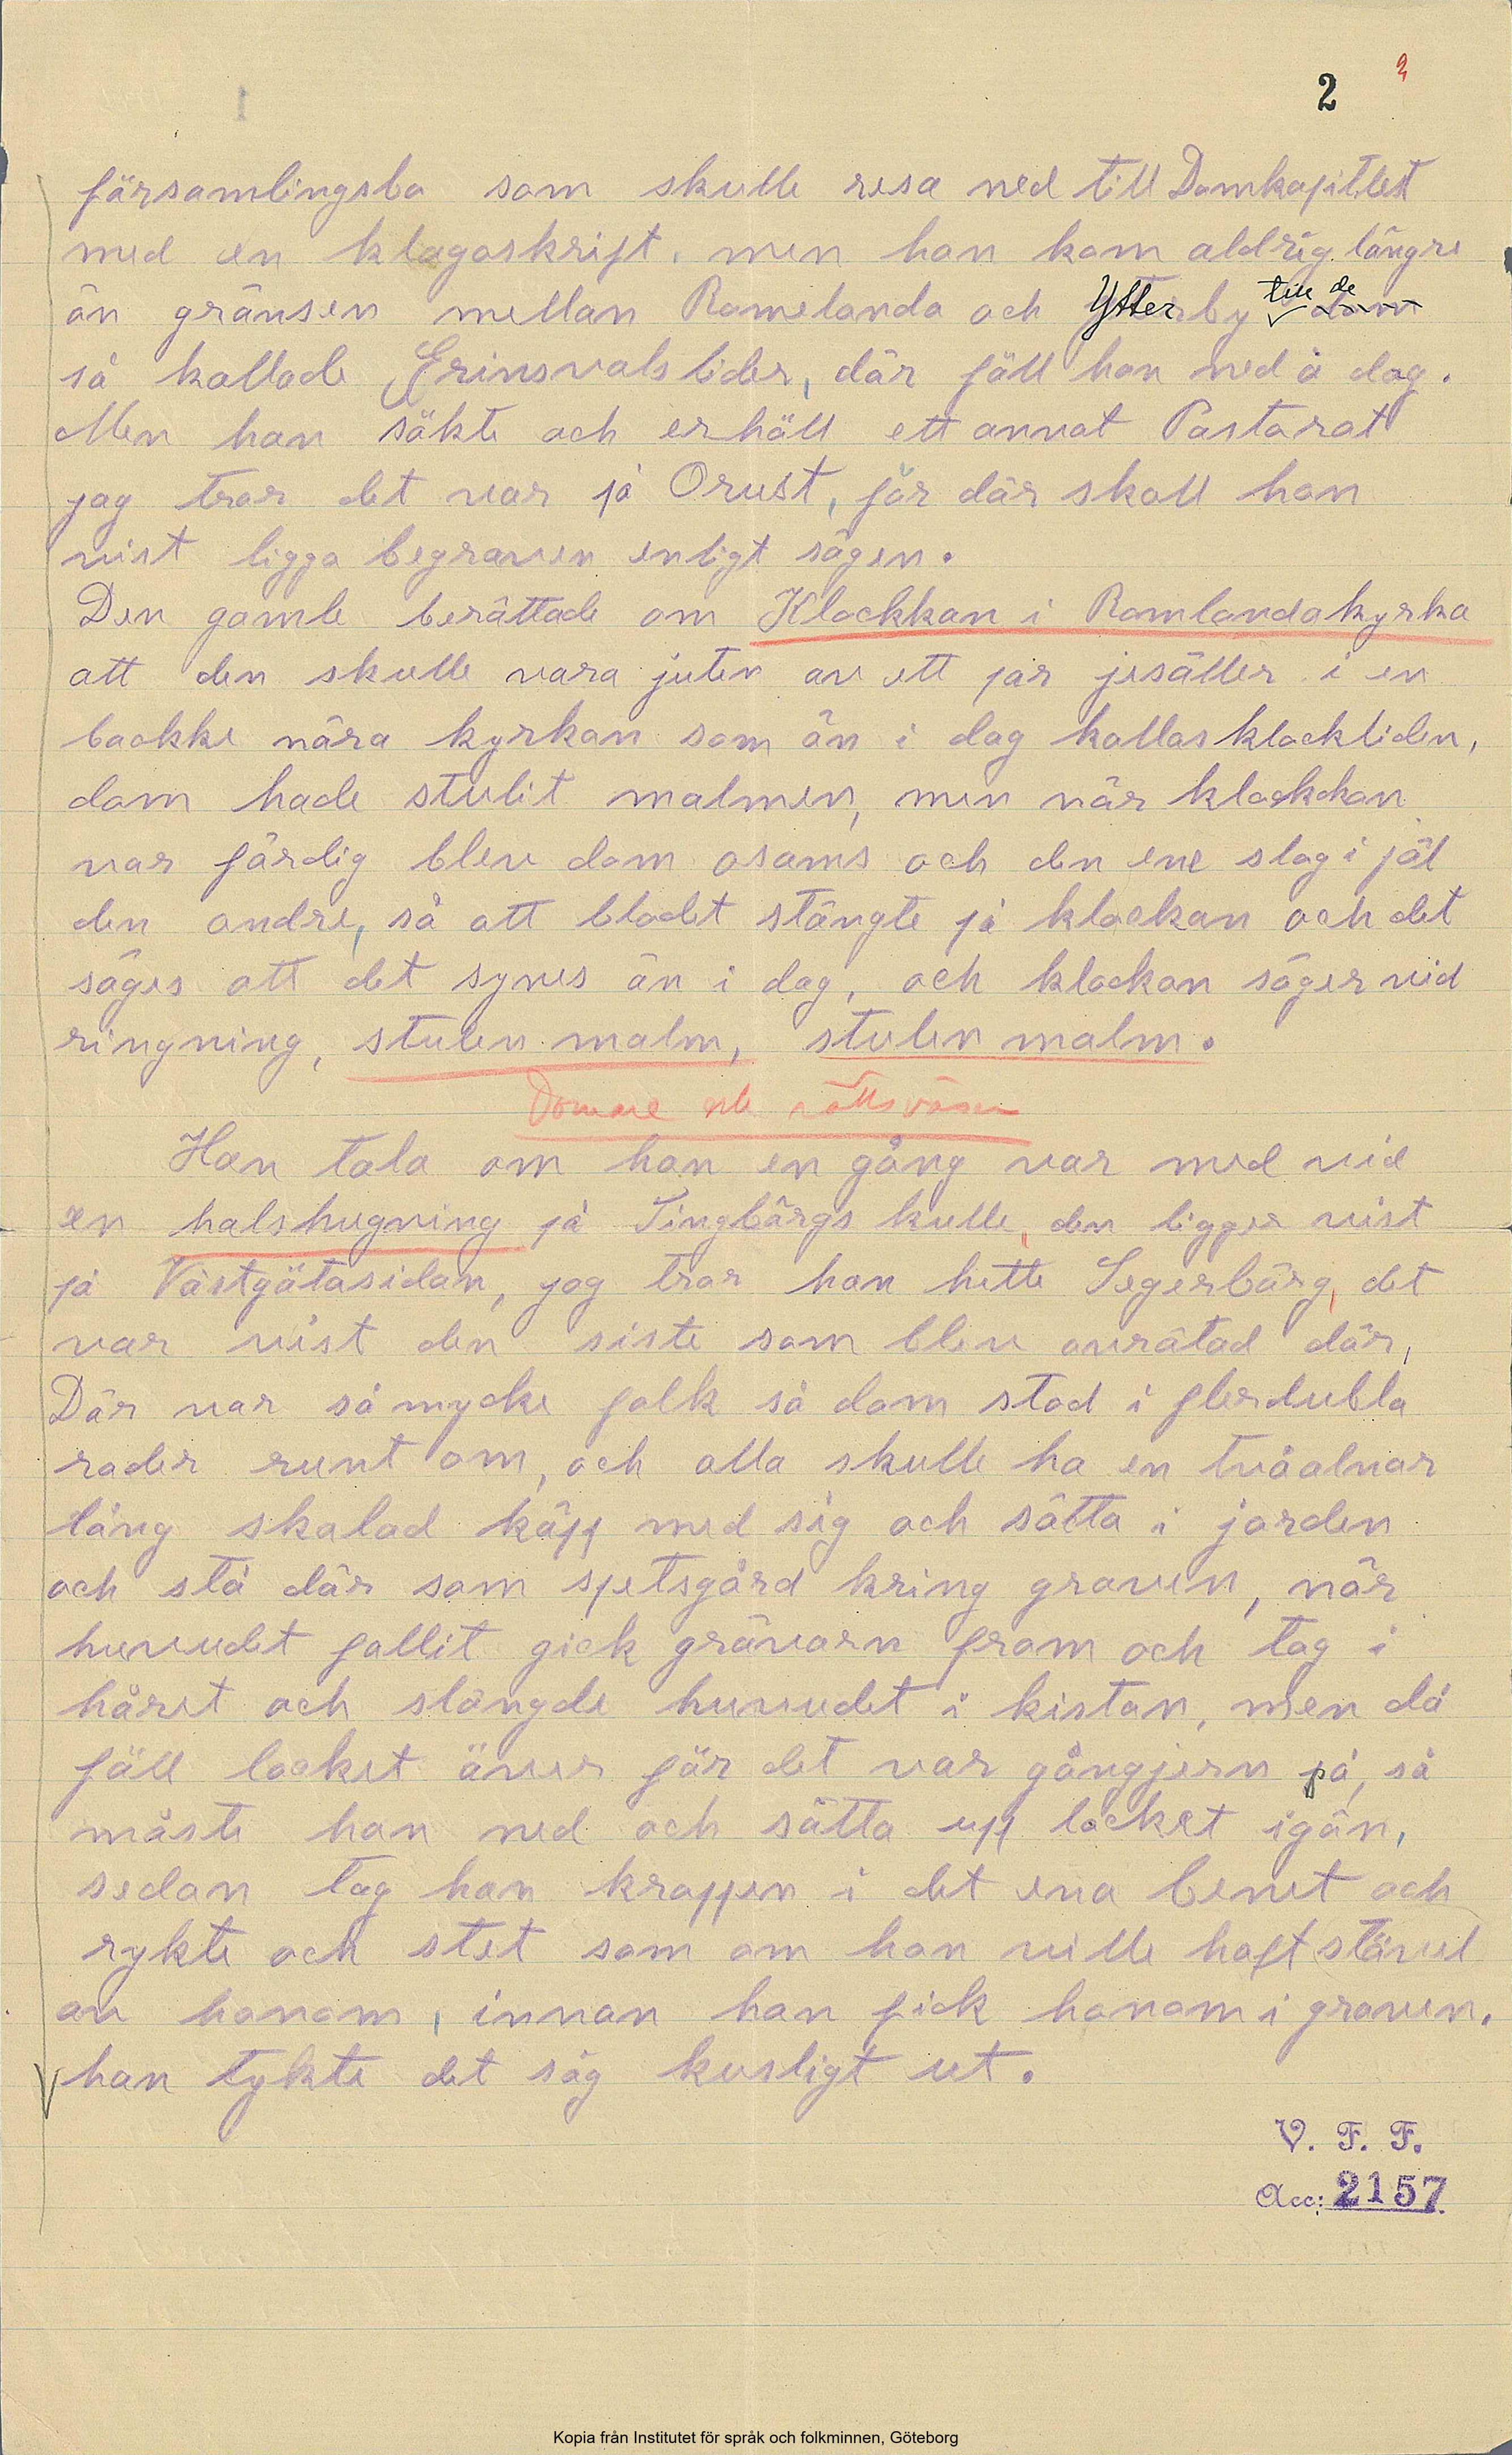 2 2
församlingsbo som skulle resa ned till Domkapitlet
med en klagoskrift. men han kom aldrig längre
än gränsen mellan Romelanda och Ytterby till de dom
så kallade Grinsvalslider, där föll han ned å dog.
Men han sökte och erhöll ett annat Pastorat
jag tror det var på Orust, för där skall han
vist ligga begraven enligt sägen.
Den gamle berättade om Klockkan i Romlandakyrka
att den skulle vara juten av ett par jesäller i en
backke nära kyrkan som än i dag kallas klockliden,
dom hade stulit malmen, men när klockkan
var färdig blev dom osams och den ene slog i jäl
den andre, så att blodet stängte på klockan och det
säges att det synes än i dag, och klockan säger vid
ringning, stulen malm, stulen malm.
Domare och rättsväsen
Han tala om han en gång var med vid
en halshugning på Tingbärgs kulle, den ligger vist
på Västgötasidan, jag tror han hette Segerbärg, det
var vist den siste som blev avrätad där,
Där var så mycke folk så dom stod i flerdubla
rader runt om, och alla skulle ha en tvåalnar
lång skalad käpp med sig och sätta i jorden
och stå där som spetsgård kring graven, när
huvudet fallit gick grävarn fram och tog i
håret och slängde huvudet i kistan, men då
föll locket över för det var gångjern på, så
måste han ned och sätta upp locket igän,
sedan tog han kroppen i det ena benet och
rykte och stet som om han ville haft stövel
av honom, innan han fick honom i graven.
han tykte det såg kusligt ut.
V. F. F.
Acc: 2157
Kopia från Institutet för språk och folkminnen, Göteborg